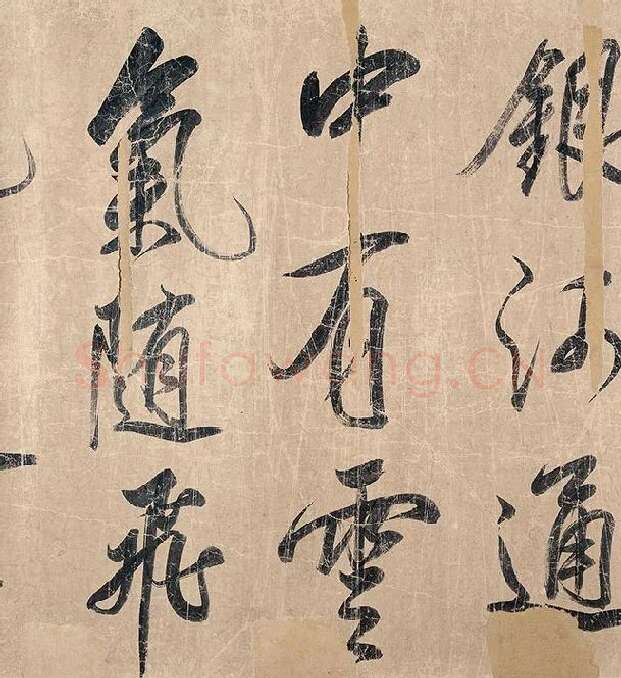 銀河通
中有雲
氣随飛
Shufawang.CN